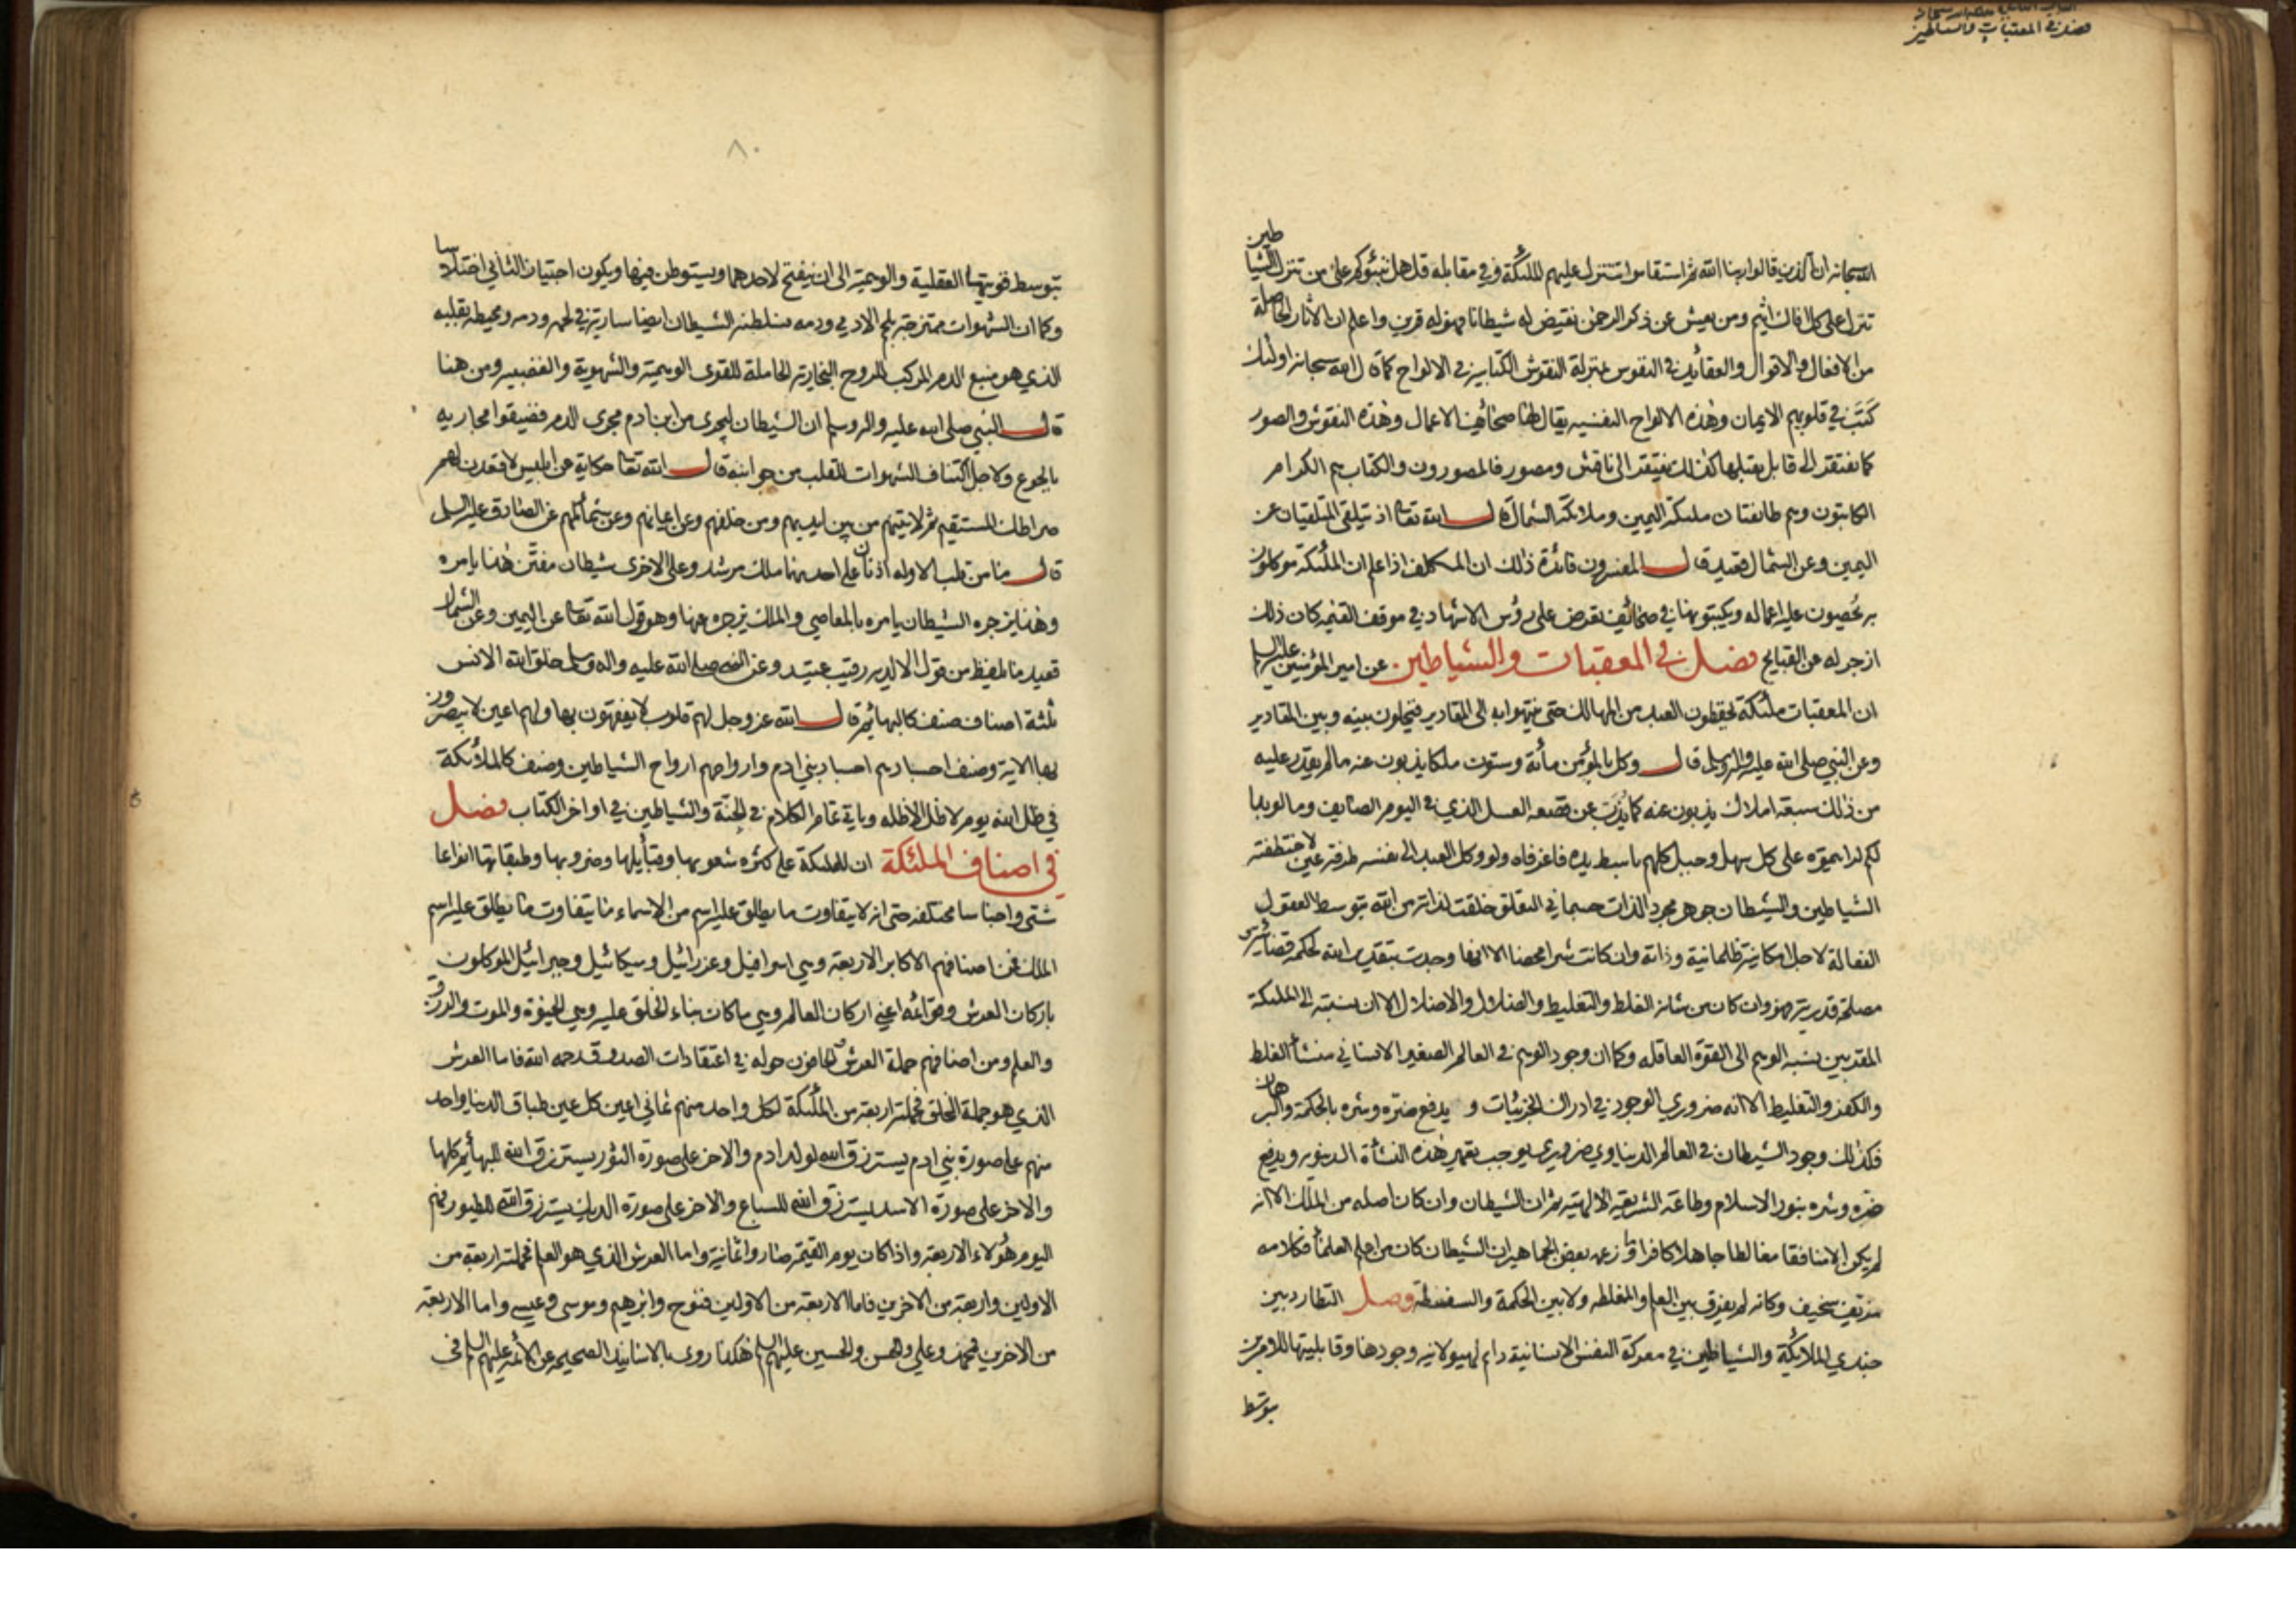 فصل في المعقبات والشياطين
الله سبحانه ان الذين قالوا ربنا الله ثم استقاموا تتنزل عليهم الملئكة وفي مقابله قل هل ننبؤكم على من تنزل الشياطين
تنزل على كل افاك اثيم ومن يعش عن ذكر الرحمن نقيض له شيطانا فهو له قرين واعلم ان الاثار الحاصلة
من الافعال والاقوال والعقائد في النفوس بمنزلة النقوش الكتابية في الالواح كما قال الله سبحانه اولئك
كتب في قلوبهم الايمان وهذه الالواح النفسيه يقال لها صحائف الاعمال وهذه النقوش والصور
كما يفتقر الى قابل يقبلها كذلك يفتقر الى ناقش ومصور فالمصورون والكتاب هم الكرام
الكاتبون وهم طائفتان ملئكة اليمين وملائكة الشمال قال الله تعالى اذ يتلقى المتلقيان عن
اليمين وعن الشمال قعيد قال المفسرون فائدة ذلك ان المكلف اذا علم ان الملئكة موكلون
به يحصون عليه اعماله ويكتبونها في صحائف تعرض على رؤس الاشهاد في موقف القيمة كان ذلك
ازجر له عن القبايح فصل في المعقبات والشياطين عن امير المؤمنين عليه السلم
ان المعقبات ملئكة يحفظون العبد من المهالك حتى ينتهوا به الى المقادير فيخلون بينه وبين المقادير
وعن النبي صلى الله عليه واله وسلم قال وكل بالمؤمن مائة وستون ملكا يذبون عنه ما لم يقدر عليه
من ذلك سبعة املاك يذبون عنه كما يذب عن قصعه العسل الذي في اليوم الصايف وما لو بدا
لكم لرايتموه على كل سهل وجبل كلهم باسط يده فاغر فاه ولو وكل العبد الى نفسه طرفة عين لاختطفته
الشياطين والشيطان جوهر مجرد الذات جسماني التعلق خلقت لذاته من الله بتوسط العقول
الفعالة لاجل امكانية ظلمانية وذاته وان كانت شرا محضا الا انها وجدت بتقدير الله لحكم قضائية
مصلحة قدرية فهو وان كان من شانه الغلط والتغليط والضلال والاضلال الا ان نسبته الى الملئكة
المقربين نسبة الوهم الى القوة العاقله وكما ان وجود الوهم في العالم الصغير الانساني منشأ الغلط
والكفر والتغليط الا انه ضروري الوجود في ادراك الجزئيات و يدفع ضره وشره بالحكمة والبرهان
فكذلك وجود الشيطان في العالم الدنياوي ضروري يوجب تعمير هذه النشأة الدنيويه ويدفع
ضره وشره بنور الاسلام وطاعة الشريعه الالهية ثم ان الشيطان وان كان اصله من الملك الا انه
لم يكن الا منافقا مغالطا جاهلا كافرا وما زعمه بعض الجماهير ان الشيطان كان من اعلم العلماء فكلامه
مزيف سخيف وكانه لم يفرق بين العلم والمغلطه ولا بين الحكمة والسفسطة وصل التطارد بين
جندي الملائكة والشياطين في معركة النفس الانسانية دائم لهيولانيه وجودها وقابليتها للامرين
بتوسط
٨٠
بتوسط قوتيها العقلية والوهمية الى ان ينفتح لاحدهما ويستوطن فيها ويكون اجتياز الثاني اختلاسا
وكما ان الشهوات ممتزجة بلحم الادمي ودمه فسلطنه الشيطان ايضا سارية في لحمه ودمه ومحيطه بقلبه
الذي هو منبع الدم المركب للروح البخارية الحاملة للقوى الوهمية والشهوية والغضبيه ومن هنا
قال النبي صلى الله عليه واله وسلم ان الشيطان ليجري من ابن ادم مجرى الدم فضيقوا مجاريه
بالجوع ولاجل اكتناف الشهوات للقلب من جوانبه قال الله تعالى حكاية عن ابليس لاقعدن لهم
صراطك المستقيم ثم لاتينهم من بين ايديهم ومن خلفهم وعن ايمانهم وعن شمائلهم عن الصادق عليه السلم
قال ما من قلب الا وله اذنان على احديهما ملك مرشد وعلى الاخرى شيطان مفتن هذا يامره
وهذا يزجره الشيطان يامره بالمعاصي والملك يزجره عنها وهو قول الله تعالى عن اليمين وعن الشمال
قعيد ما يلفظ من قول الا لديه رقيب عتيد وعن النبي صلى الله عليه واله وسلم خلق الله الانس
ثلثة اصناف صنف كالبهائم قال الله عز وجل لهم قلوب لا يفقهون بها ولهم اعين لا يبصرون
بها الاية وصنف اجسادهم اجساد بني ادم وارواحهم ارواح الشياطين وصنف كالملائكة
في ظل الله يوم لا ظل الا ظله وياتي تمام الكلام في الجنة والشياطين في اواخر الكتاب فصل
في اصناف الملئكة ان للملئكة على كثرة شعوبها وقبايلها وضروبها وطبقاتها انواعا
شتى واجناسا مختلفة حتى انه لا يتفاوت ما يطلق عليه اسم من الاسماء ما يتفاوت ما يطلق عليه اسم
الملك فمن اصنافهم الاكابر الاربعة وهي اسرافيل وعزرائيل وميكائيل وجبرائيل الموكلون
باركان العرش وقوائمه اعني اركان العالم وهي ما كان بناء الخلق عليه وهي الحيوة والموت والرزق
والعلم ومن اصنافهم حملة العرش الحافون حوله في اعتقادات الصدوق رحمه الله فاما العرش
الذي هو جملة الخلق فحملته اربعة من الملئكة لكل واحد منهم ثماني اعين كل عين طباق الدنيا واحد
منهم على صورة بني ادم يسترزق الله لولد ادم والاخر على صورة الثور يسترزق الله للبهائم كلها
والاخر على صورة الاسد يسترزق الله للسباع والاخر على صورة الديك يسترزق الله للطيور فهم
اليوم هؤلاء الاربعة واذا كان يوم القيمة صاروا ثمانية واما العرش الذي هو العلم فحملته اربعة من
الاولين واربعة من الاخرين فاما الاربعة من الاولين فنوح وابرهيم وموسى وعيسى واما الاربعة
من الاخرين فمحمد وعلي والحسن والحسين عليهم السلم هكذا روى بالاسانيد الصحيحه عن الائمة عليهم السلم في